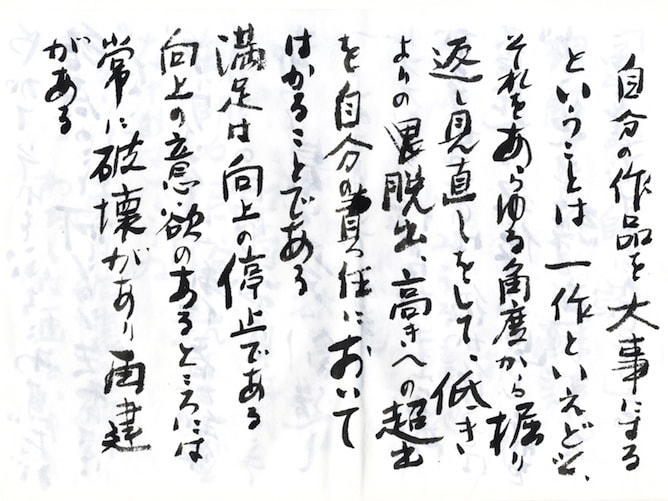 自分の作品を大事にする
ということは一作といえども、
それをあらゆる角度から掘り
返し見直しをして、低き
よりの脱出、高きへの超出
を自分の責任において
はかることである
満足は向上の停止である
向上の意欲のあるところには
常に破壊があり再建
がある